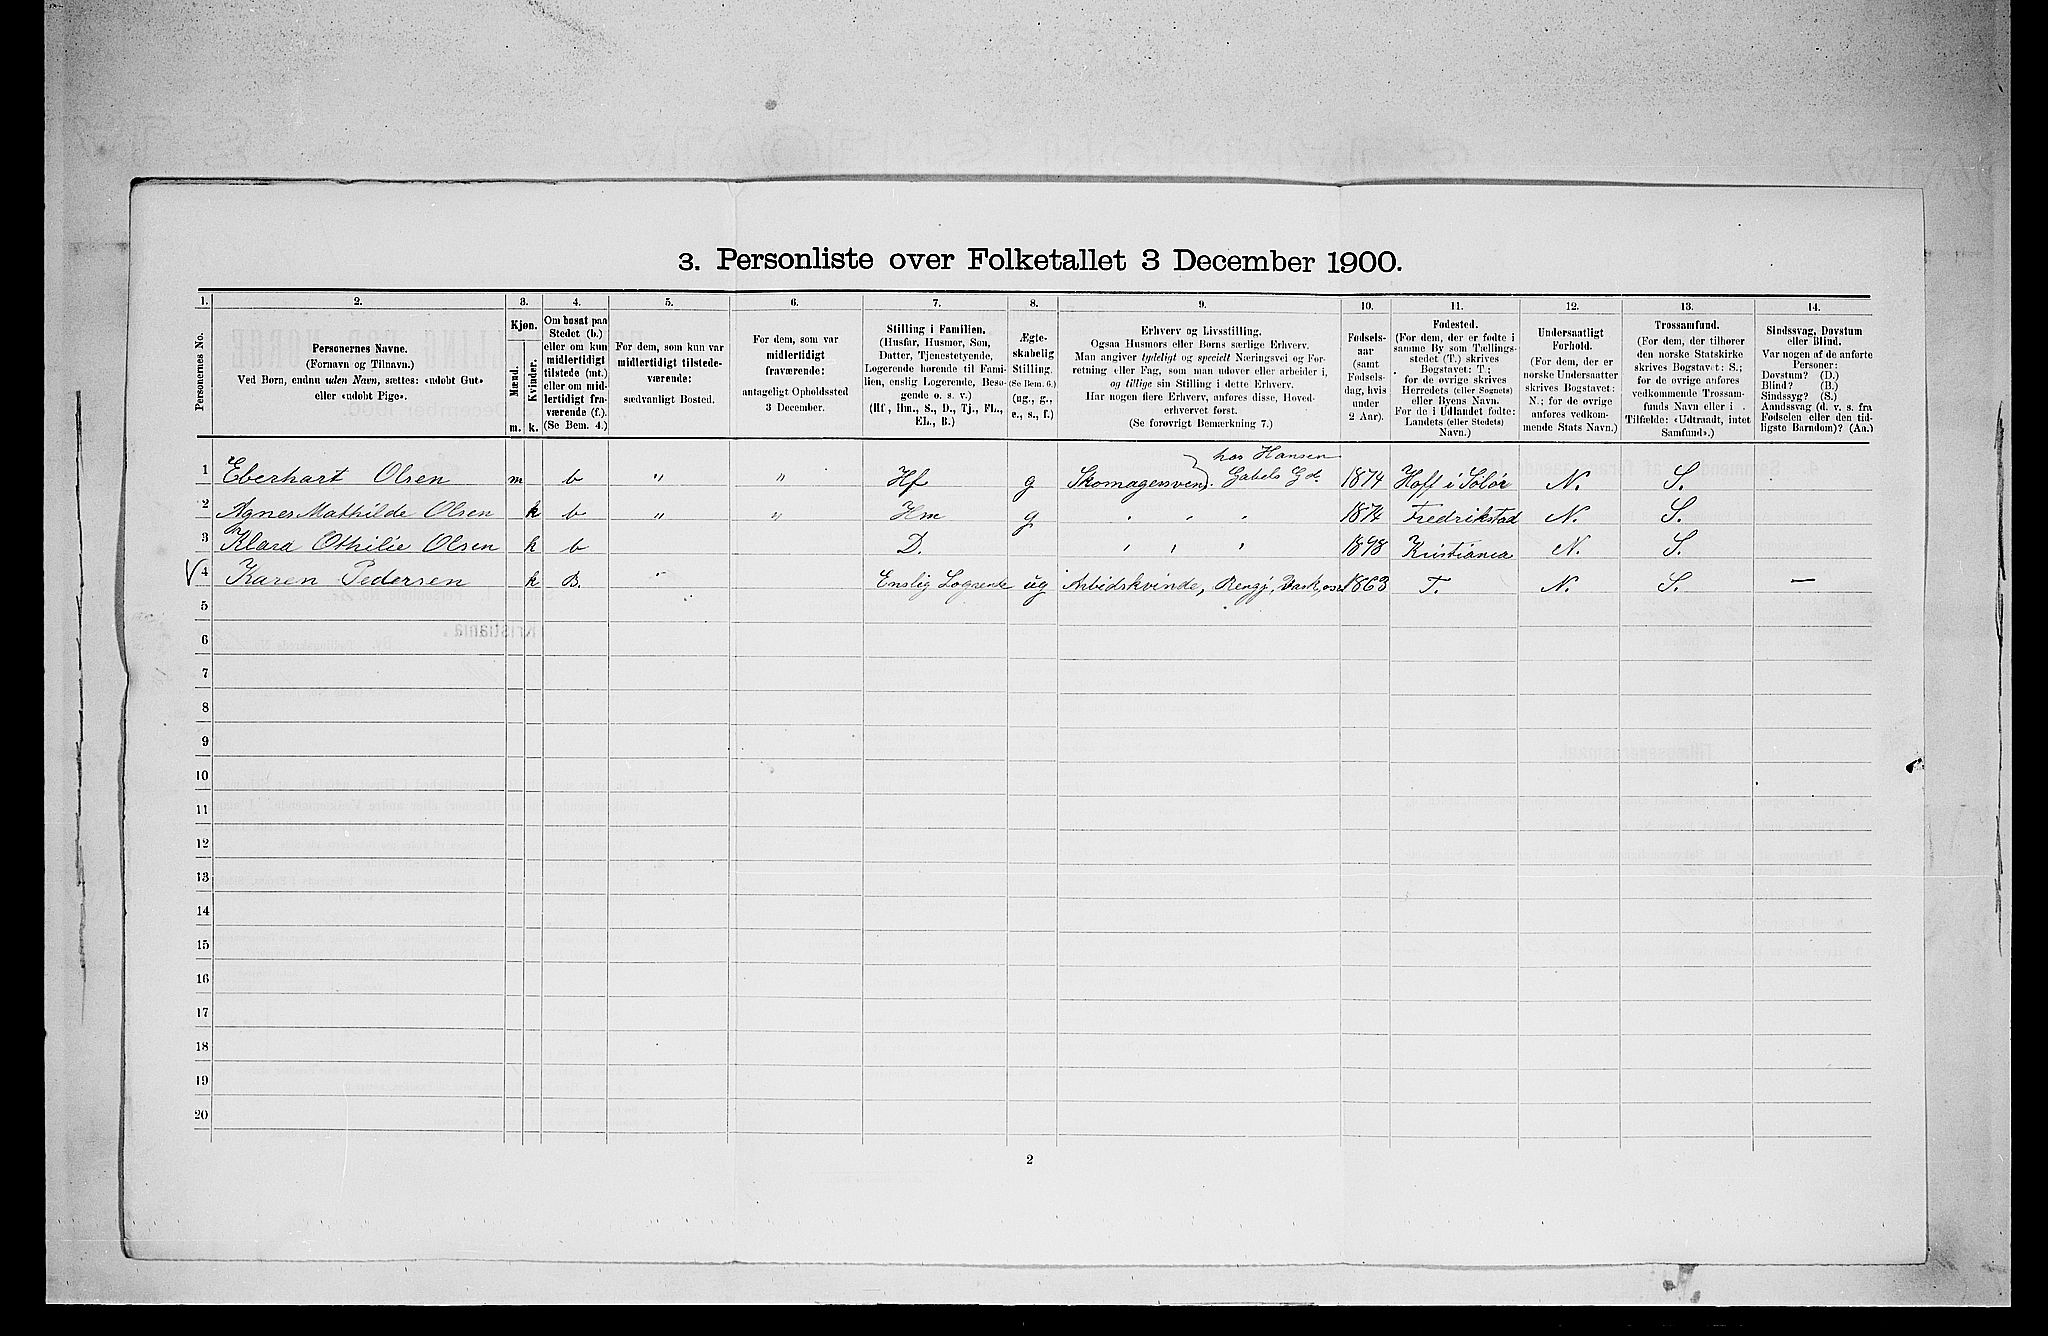 3. Personliste over Folketallet 3 December 1900.
1. 2. 3. 4. 5. 6. 7. 8. 9. 10. 11. 12. 13. 14.
Personernes No.
Personernes Navne.
(Fornavn og Tilnavn.)
Ved Børn, endnu uden Navn, sættes: «udøbt Gut»
eller «udøbt Pige».
Kjøn.
Mænd.
Kvinder.
m. k.
Om bosat paa
Stedet (b.)
eller om kun
midlertidigt
tilstede (mt.)
eller om mid-
lertidigt fra-
værende (f.).
(Se Bem. 4.)
For dem, som kun var
midlertidigt tilstede-
værende:
sædvanligt Bosted.
For dem, som var
midlertidigt
fraværende:
antageligt Opholdssted
3 December.
Stilling i Familien.
(Husfar, Husmor, Søn,
Datter, Tjenestetyende,
Logerende hørende til Fami-
lien, enslig Logerende, Besø-
gende o. s. v.)
(Hf, Hm., S., D., Tj., FL.,
EL., B.)
Ægte-
skabelig
Stilling.
(Se Bem. 6.)
(ug., g.,
e., s., f.)
Erhverv og Livsstilling.
Ogsaa Husmors eller Børns særlige Erhverv.
Man angiver tydeligt og specielt Næringsvei og For-
retning eller Fag, som man udøver eller arbeider i,
og tillige sin Stilling i dette Erhverv.
Har nogen flere Erhverv, anføres disse, Hoved-
erhvervet først.
(Se forøvrigt Bemærkning 7.)
Fødsels-
aar
(samt
Fødsels-
dag, hvis
under
2 Aar).
Fødested.
(For dem, der er fødte i
samme By som Tællings-
stedet (T.) skrives
Bogstavet: T.;
for de øvrige skrives
Herredets (eller Sognets)
eller Byens Navn.
For de i Udlandet fødte:
Landets (eller Stedets)
Navn.)
Undersaatligt
Forhold.
(For dem, der er
norske Undersaatter
skrives Bogstavet:
N.; for de øvrige
anføres vedkom-
mende Stats Navn.)
Trossamfund.
(For dem, der tilhører
den norske Statskirke
skrives Bogstavet: S.;
for de øvrige anføres
vedkommende Trossam-
funds Navn eller i
Tilfælde: «Udtraadt, intet
Samfund».)
Sindssvag, Døvstum
eller Blind.
Var nogen af de anførte
Personer:
Døvstum? (D.)
Blind? (B.)
Sindssyg? (S.)
Aandssvag (d. v. s. fra
Fødselen eller den tid-
ligste Barndom)? (Aa.)
hos Hansen
1 Eberhart Olsen m b " " Hf g Skomagersvend. Gabels Gd. 1874 Hoff i Solør N. S.
2 Agnes Mathilde Olsen k b " " Hm g 1874 Fredrikstad N. S.
3 Klara Othilie Olsen k b D. 1898 Kristiania N. S.
4 Karen Pedersen k B. " Enslig Logerende ug Arbidskvinde, Rengj, Vask, 1863 T. N. S. —
5
6
7
8
9
10
11
12
13
14
15
16
17
18
19
20
2